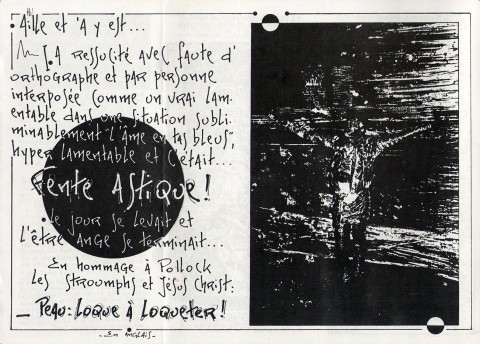 Aïlle et 'A y est...
A ressucité avec faute d'
orthographe et par personne
interposée comme un vrai lam-
entable dans une situation subli-
minablement "l'Âme en tas bleus",
hyper lamentable et c'était...
Fente Astique!
Le jour se levait et
l'être ange se terminait...
En hommage à Pollock
les Stroomphs et Jésus Christ:
_ Peau: Loque à Loqueter!
_ En anglais _